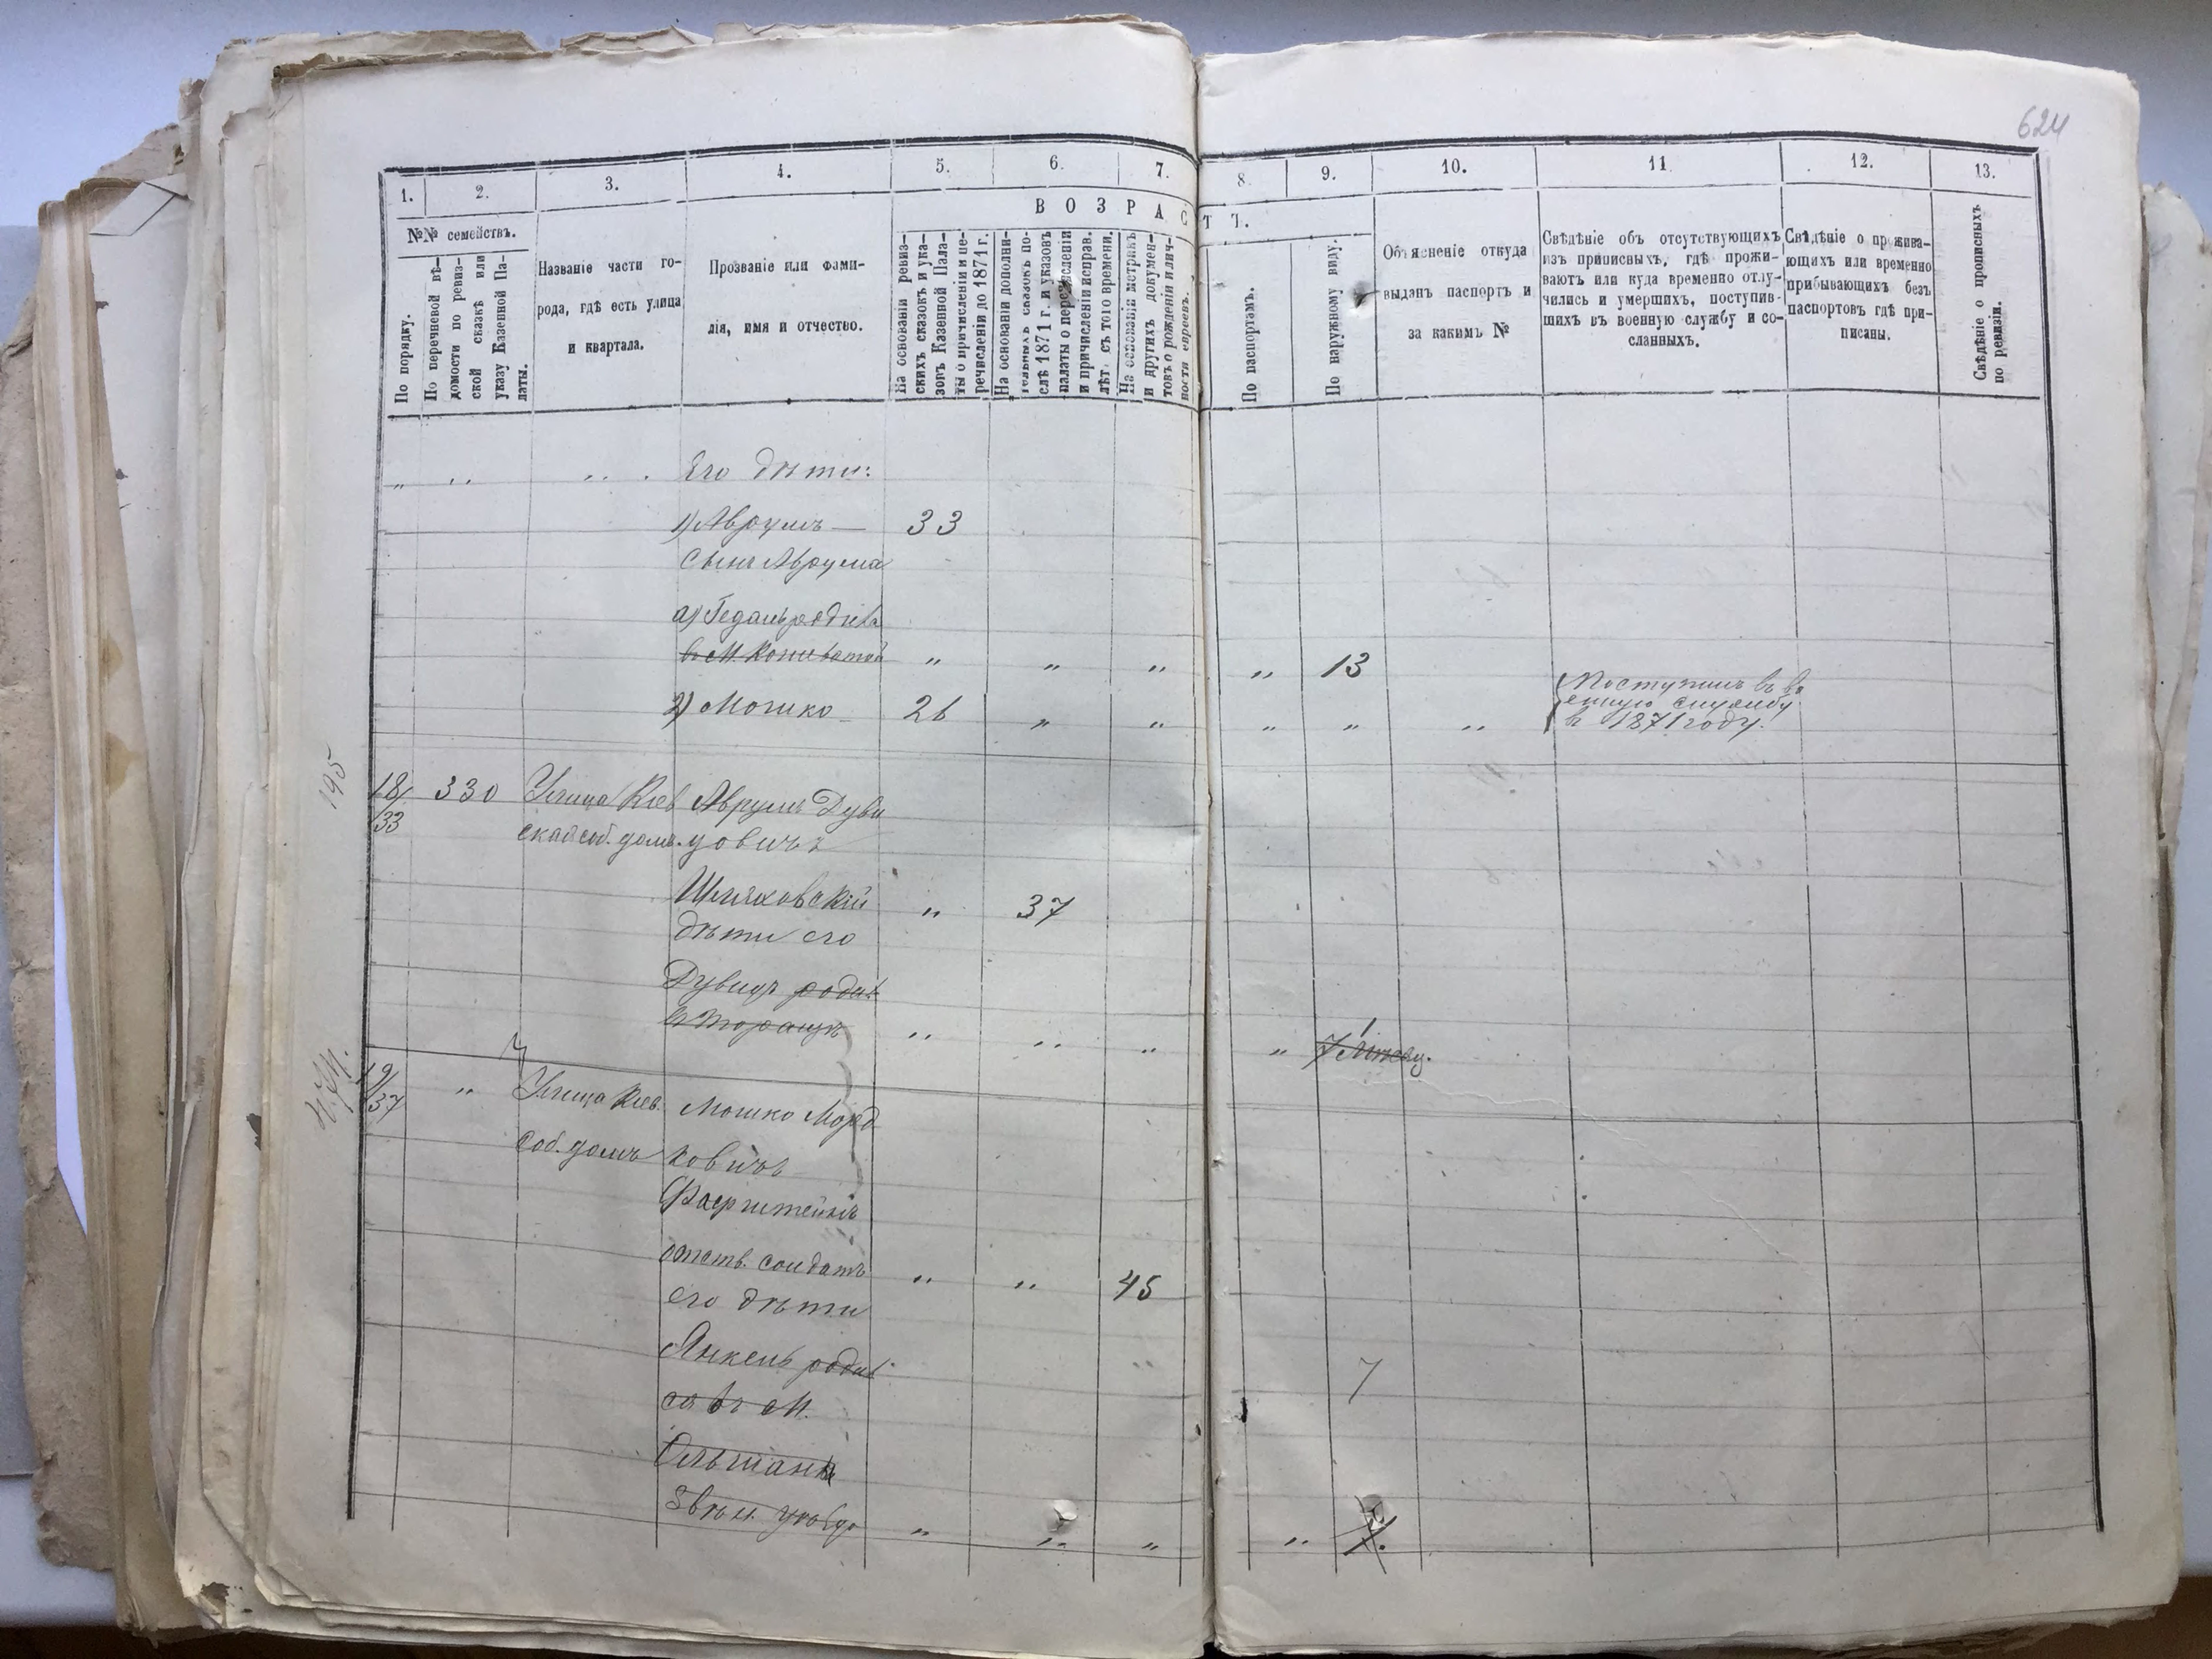 624
1. 2. 3. 4. 5. 6. 7. 8. 9. 10. 11 12. 13.
В О З Р А С Т Ъ.
№№ семействъ.
По порядку.
По перечневой вѣ-
домости по ревиз-
ской сказкѣ или
указу Казенной Па-
латы.
Названіе части го-
рода, гдѣ есть улица
и квартала.
Прозваніе или фами-
лія, имя и отчество.
На основаніи ревиз-
скихъ сказокъ и ука-
зовъ Казенной Пала-
ты о причисленіи и пе-
речисленіи до 1871 г.
На основаніи дополни-
тельныхъ сказокъ по-
слѣ 1871 г. и указовъ
палаты о перечисленіи
и причисленіи исправ.
лѣт. съ того времени.
На основаніи метрикъ
и другихъ докумен-
товъ о рожденіи и лич-
ности евреевъ.
По паспортамъ.
По наружному виду.
Объясненіе откуда
выданъ паспортъ и
за какимъ №
Свѣдѣніе объ отсутствующихъ
изъ приписныхъ, гдѣ прожи-
ваютъ или куда временно отлу-
чились и умершихъ, поступив-
шихъ въ военную службу и со-
сланныхъ.
Свѣдѣніе о прожива-
ющихъ или временно
прибывающихъ безъ
паспортовъ гдѣ при-
писаны.
Свѣдѣніе о прописныхъ
по ревизіи.
„ „ „ Его дѣти:
1) Аврумъ — 33
Сынъ Аврума
а) Гедаль родился
въ М. „ „ „ „ 13
2) Мошко 26 „ „ „ „ „
Поступилъ въ во
енную службу
въ 1871 году.
195
18/33 330 Улица Кіев Аврумъ Дуви
ская соб. домъ. довичъ
Шляховскій „ 37
дѣти его
Дувидъ родил
„ „ „ „ 7
19/37 „ Улица Кіев. Мошко Морд
соб. домъ ковичъ
отств. солдатъ „ „ 45
его дѣти
Янкель родил 7
ся въ М.
Ольшана
Звѣн. уѣзда „ „ „ „ 7.